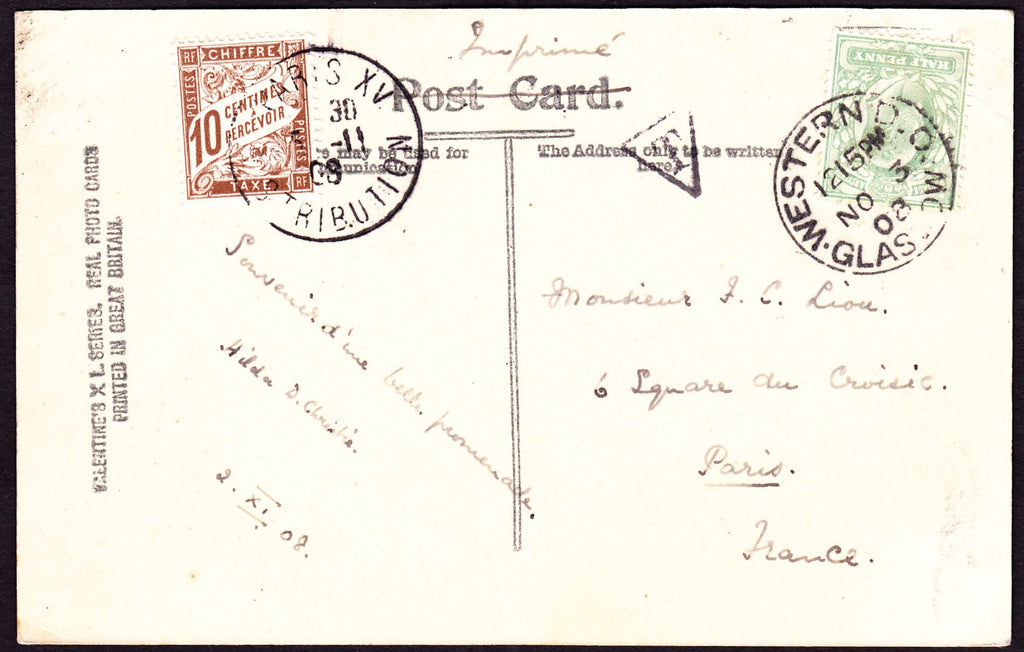 Imprimé
Post Card.
may be used for
The Address only to be written
here
RF CHIFFRE RF
POSTES
10 CENTIMES
A PERCEVOIR
POSTES
TAXE RF
PARIS XV
30
-11
08
DISTRIBUTION
HALF PENNY
WESTERN D.O.
GLAS
1215PM
NO 3
08
VALENTINE'S X L SERIES. REAL PHOTO CARDS
PRINTED IN GREAT BRITAIN.
Souvenir d'une belle promenade.
Hilda D. Christie.
2. XI. 08.
Monsieur J. C. Liou.
6 Square du Croisic.
Paris.
France.